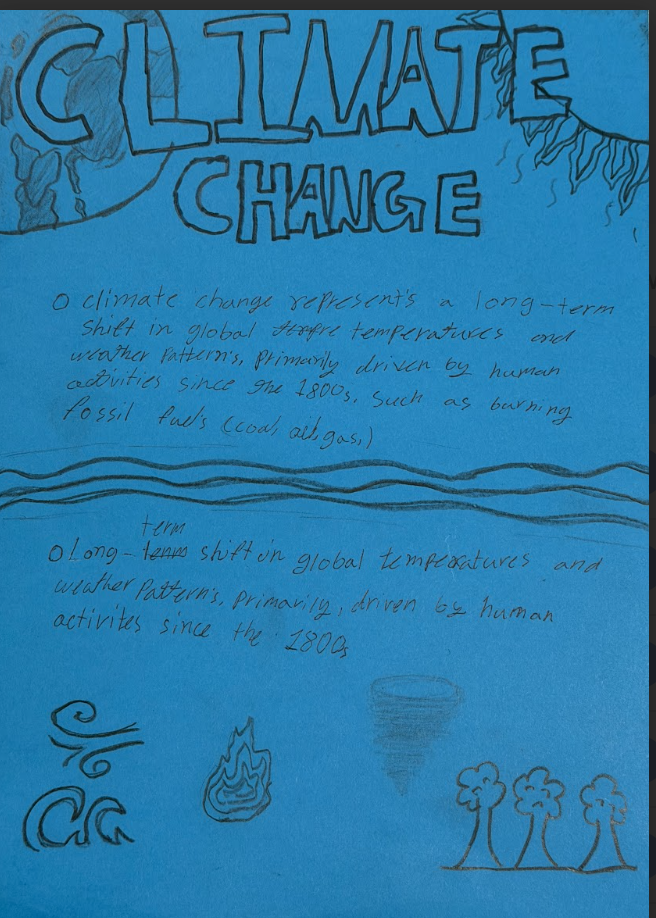 CLIMATE
CHANGE
o climate change represent's a long-term
shift in global temperatures and
weather Pattern's, primarily driven by human
activities since the 1800s, such as burning
fossil fuels (coal, oil, gas,)
term
o Long- shift in global temperatures and
weather Pattern's, primarily, driven by human
activites since the 1800s